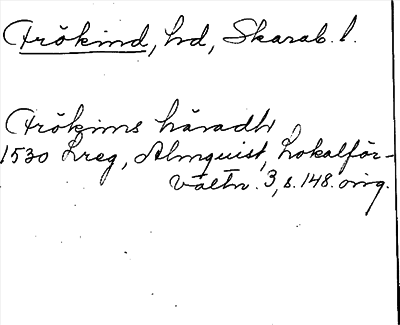 Frökind, hd, Skarab. l.
Frökins häradh
1530 Lreg, Almquist, Lokalför-
valtn. 3, s. 148. orig.